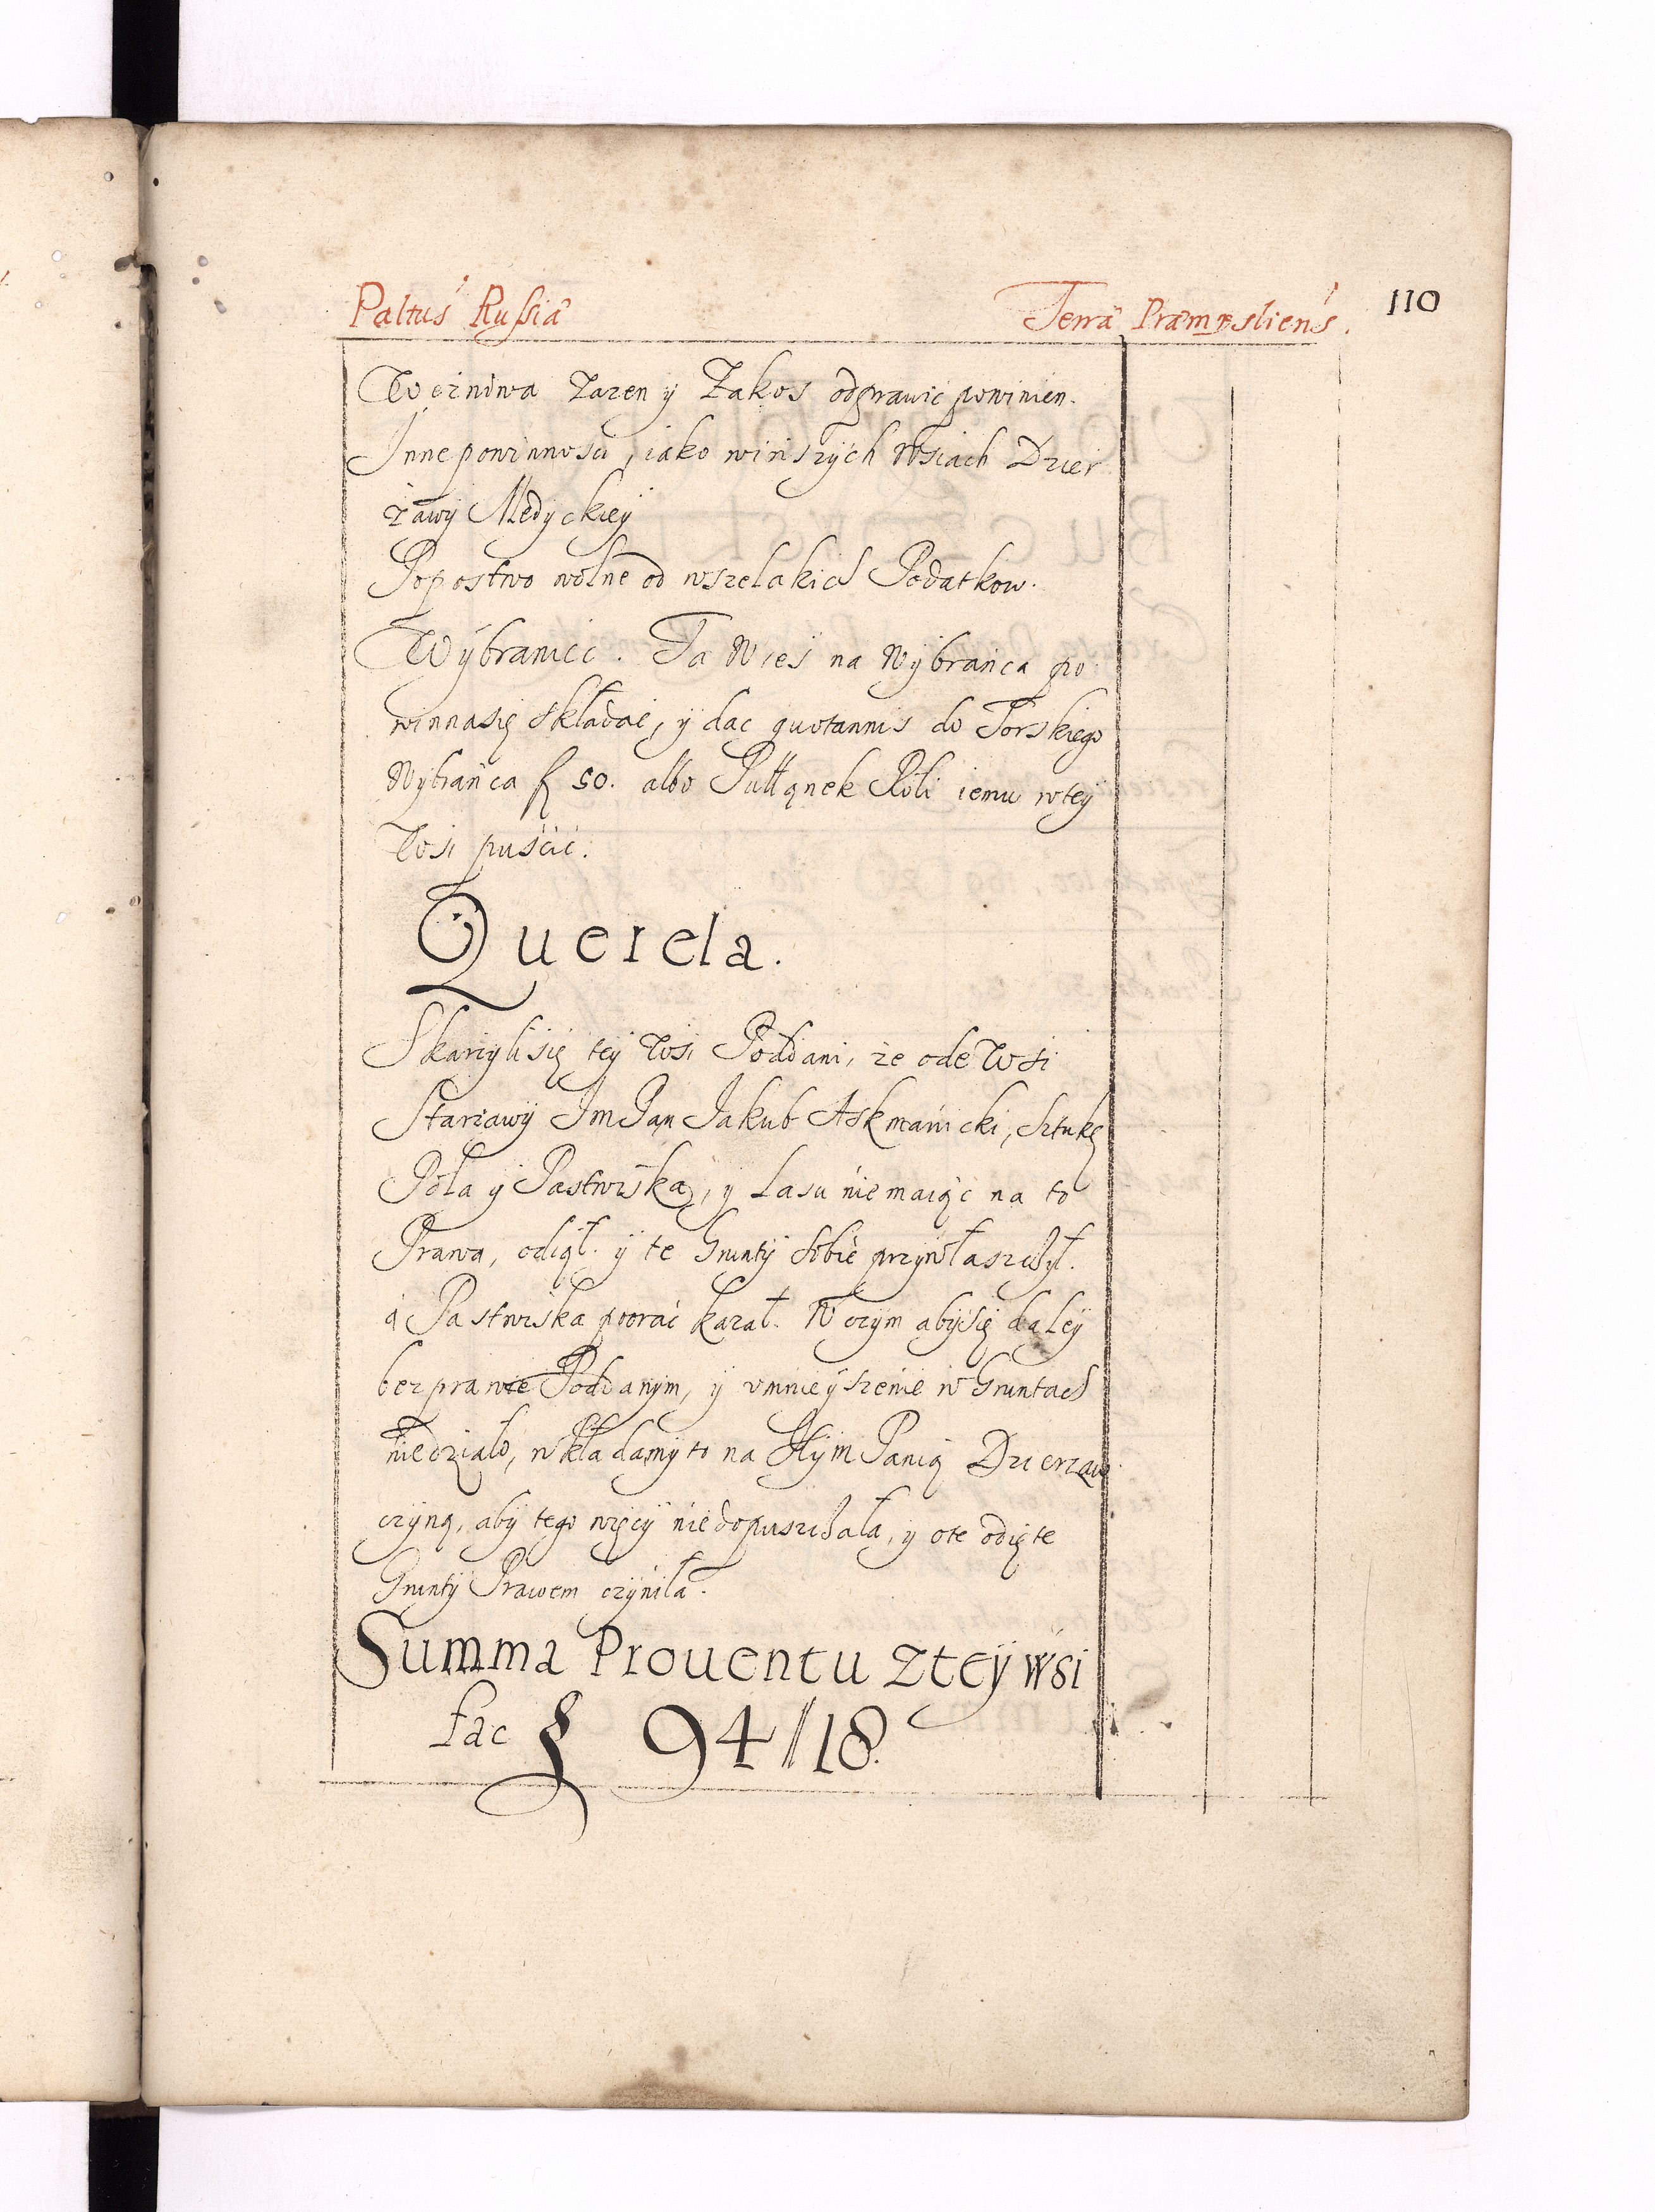 Paltus Russiæ Terræ Præmysliens. 110
We żniwa Zażen y Zakos odprawić powinien.
Inne powinnosci, iako winszych Wsiach Dzier
żawy Medyckiey
Popostwo wolne od wszelakich Podatkow.
Wybraniec. Ta Wieś na Wybrańca po
winnasię składać, y dac quotannis do Torskiego
Wybrańca f 50. albo Pułłanek Roli iemu wtey
Wsi puścić.
Querela.
Skarżylisię tey Wsi Poddani, że ode Wsi
Starzawy Im Pan Jakub Askmanicki, sztukę
Pola y Pastwiska, y Lasu niemaiąc na to
Prawa, odiął. y te Grunty sobie przywłaszczył.
a Pastwiska poorać kazał. W czym abysię daley
bezprawie Poddanym, y vmnieyszenie w Gruntach
niedziało, wkładamy to na Jeym Panią Dzierzaw
czyną, aby tego więcy niedopuszczała, y ote odięte
Grunty Prawem czyniła.
Summa Prouentu Ztey wsi
fac f 94//18.